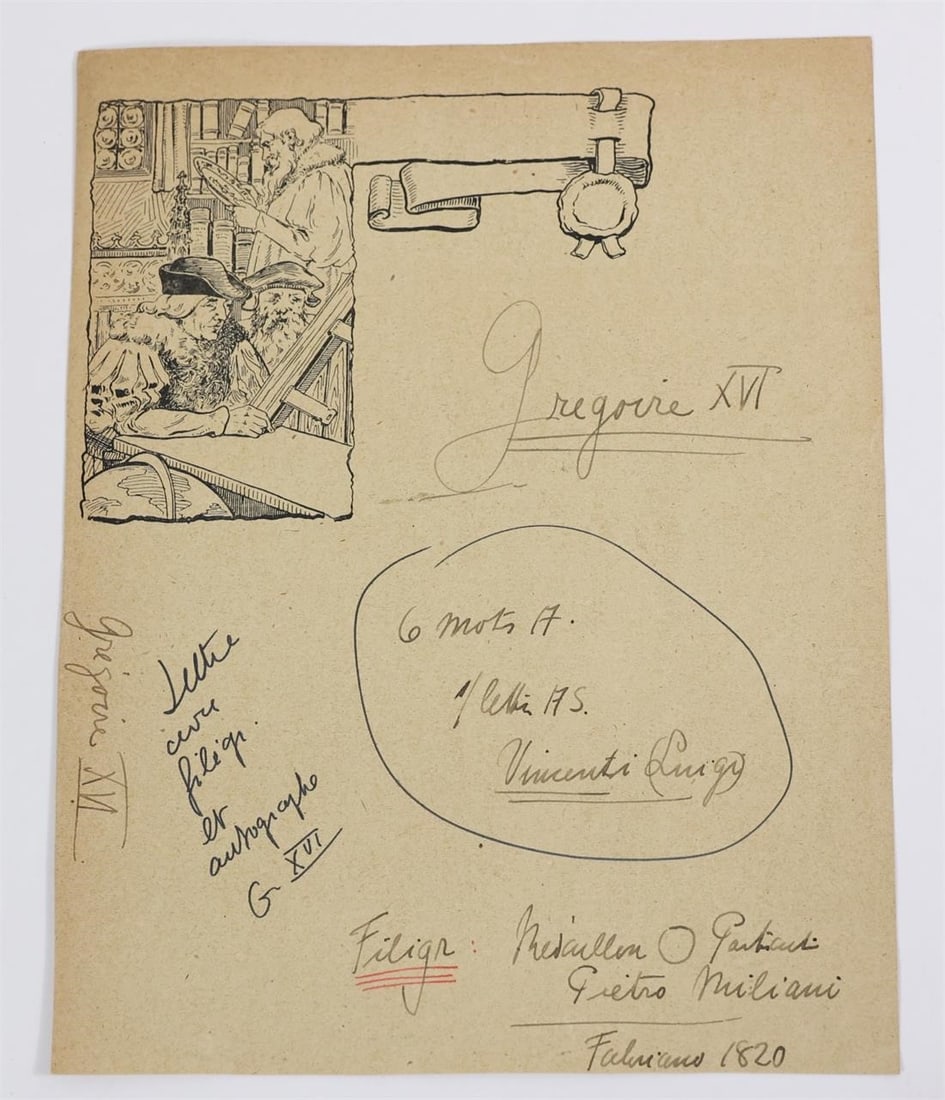 Gregoire XVI
6 mots A.
s/ lettre A S.
Vincenti (Luigi)
Grégoire XVI
Lettre
avec
filigr.
et
autographe
G. XVI
Filigr: Médaillon
Pietro Miliani
Fabriano 1820